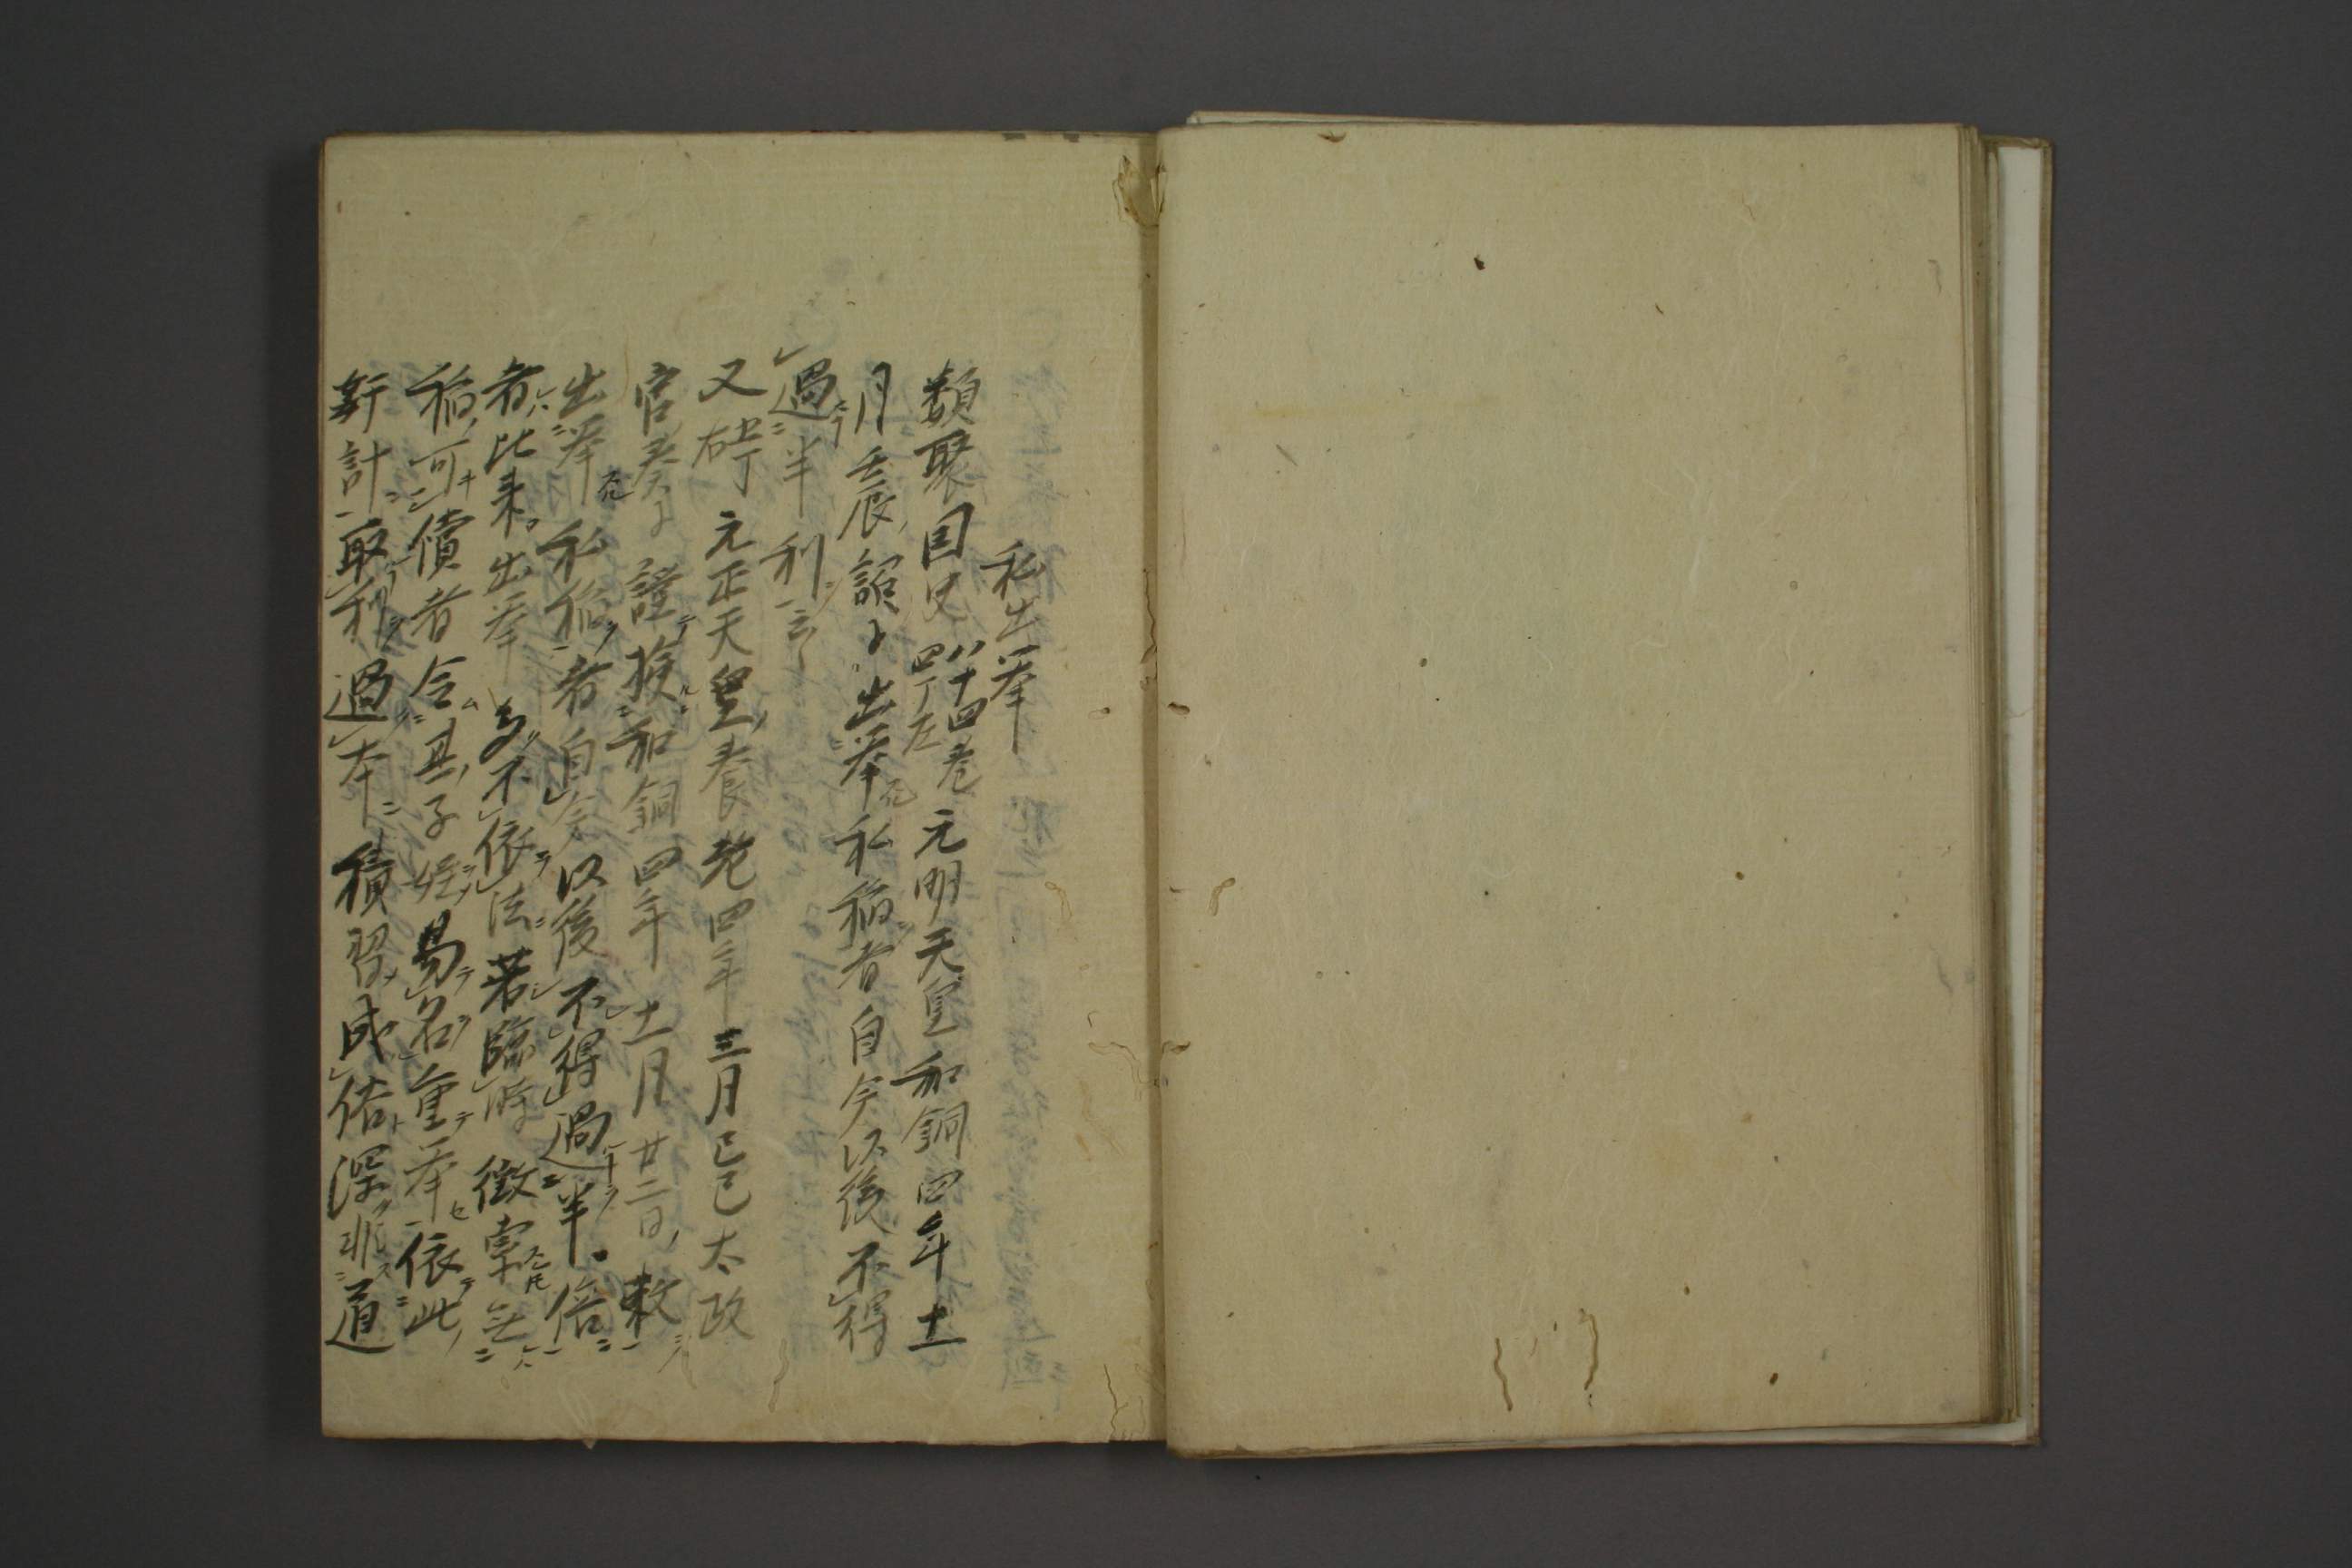 私出挙
類聚国史八十四巻四丁左元明天皇和銅四年十一
月壬辰詔曰出挙私稲者自今以後不得
過半利云云
又五十丁右元正天皇養老四年三月己巳太政
官奏曰謹検和銅四年十一月廿二日勅
出挙私稲者自今以後不得過半倍
者比来出挙多不依法若臨時徴索無
稲可償者令其子姪易名重挙依此
姧計取利過本積習成俗深非道